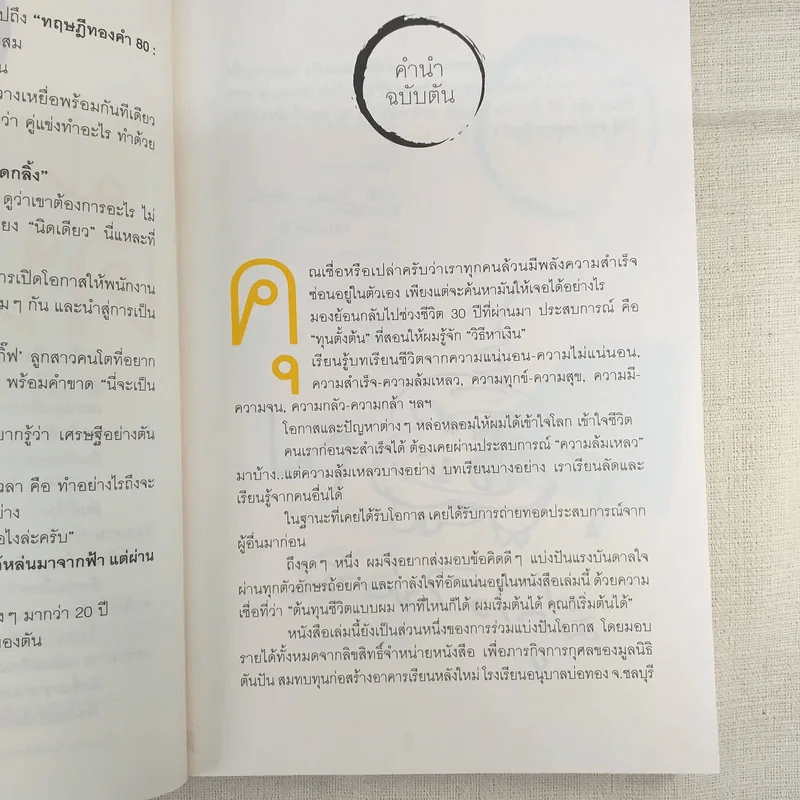 ปถึง “ทฤษฎีทองคำ 80 :
สม
น
วางเหยื่อพร้อมกันทีเดียว
ว่า คู่แข่งทำอะไร ทำด้วย
ดกลิ้ง”
ดูว่าเขาต้องการอะไร ไม่
ยง “นิดเดียว” นี่แหละที่
การเปิดโอกาสให้พนักงาน
มๆ กัน และนำสู่การเป็น
กิ๊ฟ’ ลูกสาวคนโตที่อยาก
พร้อมคำขาด “นี่จะเป็น
ยากรู้ว่า เศรษฐีอย่างตัน
วลา คือ ทำอย่างไรถึงจะ
ย่าง
อไงล่ะครับ”
ด้หล่นมาจากฟ้า แต่ผ่าน
งๆ มากว่า 20 ปี
ของตัน
คำนำ
ฉบับตัน
คุณเชื่อหรือเปล่าครับว่าเราทุกคนล้วนมีพลังความสำเร็จ
ซ่อนอยู่ในตัวเอง เพียงแต่จะค้นหามันให้เจอได้อย่างไร
มองย้อนกลับไปช่วงชีวิต 30 ปีที่ผ่านมา ประสบการณ์ คือ
“ทุนตั้งต้น” ที่สอนให้ผมรู้จัก “วิธีหาเงิน”
เรียนรู้บทเรียนชีวิตจากความแน่นอน-ความไม่แน่นอน,
ความสำเร็จ-ความล้มเหลว, ความทุกข์-ความสุข, ความมี-
ความจน, ความกลัว-ความกล้า ฯลฯ
โอกาสและปัญหาต่างๆ หล่อหลอมให้ผมได้เข้าใจโลก เข้าใจชีวิต
คนเราก่อนจะสำเร็จได้ ต้องเคยผ่านประสบการณ์ “ความล้มเหลว”
มาบ้าง..แต่ความล้มเหลวบางอย่าง บทเรียนบางอย่าง เราเรียนลัดและ
เรียนรู้จากคนอื่นได้
ในฐานะที่เคยได้รับโอกาส เคยได้รับการถ่ายทอดประสบการณ์จาก
ผู้อื่นมาก่อน
ถึงจุดๆ หนึ่ง ผมจึงอยากส่งมอบข้อคิดดีๆ แบ่งปันแรงบันดาลใจ
ผ่านทุกตัวอักษรถ้อยคำ และกำลังใจที่อัดแน่นอยู่ในหนังสือเล่มนี้ ด้วยความ
เชื่อที่ว่า “ต้นทุนชีวิตแบบผม หาที่ไหนก็ได้ ผมเริ่มต้นได้ คุณก็เริ่มต้นได้”
หนังสือเล่มนี้ยังเป็นส่วนหนึ่งของการร่วมแบ่งปันโอกาส โดยมอบ
รายได้ทั้งหมดจากลิขสิทธิ์จำหน่ายหนังสือ เพื่อภารกิจการกุศลของมูลนิธิ
ตันปัน สมทบทุนก่อสร้างอาคารเรียนหลังใหม่ โรงเรียนอนุบาลบ่อทอง จ.ชลบุรี